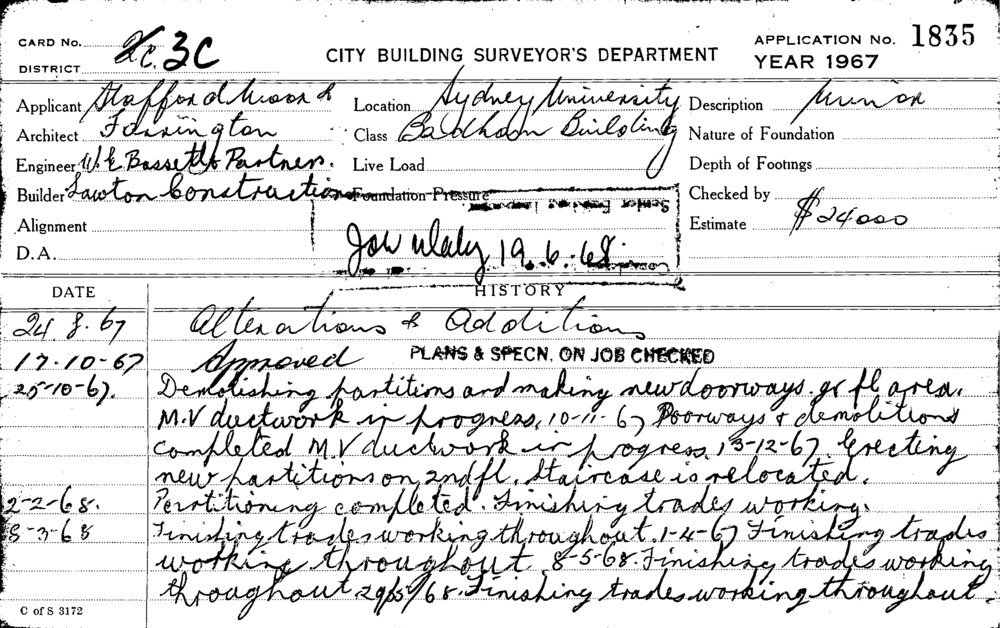 CARD No.
DISTRICT 3C
CITY BUILDING SURVEYOR'S DEPARTMENT
APPLICATION No. 1835
YEAR 1967
Applicant Stafford Moor &
Architect Farrington
Engineer W.E Bassett & Partners.
Builder Lawton Construction
Alignment
D.A.
Location Sydney University
Class Badham Building
Live Load
Foundation Pressure
19.6.68
Description
Nature of Foundation
Depth of Footings
Checked by
Estimate $24000
DATE HISTORY
24.8.67 Alterations & Additions
17.10-67 Approved PLANS & SPECN. ON JOB CHECKED
25-10-67. Demolishing partitions and making new doorways. gr fl area.
M.V ductwork in progress. 10-11-67 Doorways & demolitions
completed M.V ductwork in progress. 13-12-67. Erecting
new partitions on 2nd fl. Staircase is relocated.
2-2-68. Partitioning completed. Finishing trades working.
8-3-68 Finishing trades working throughout. 1-4-67 Finishing trades
working throughout 8-5-68. Finishing trades working
throughout. 29/5/68. Finishing trades working throughout.
C of S 3172